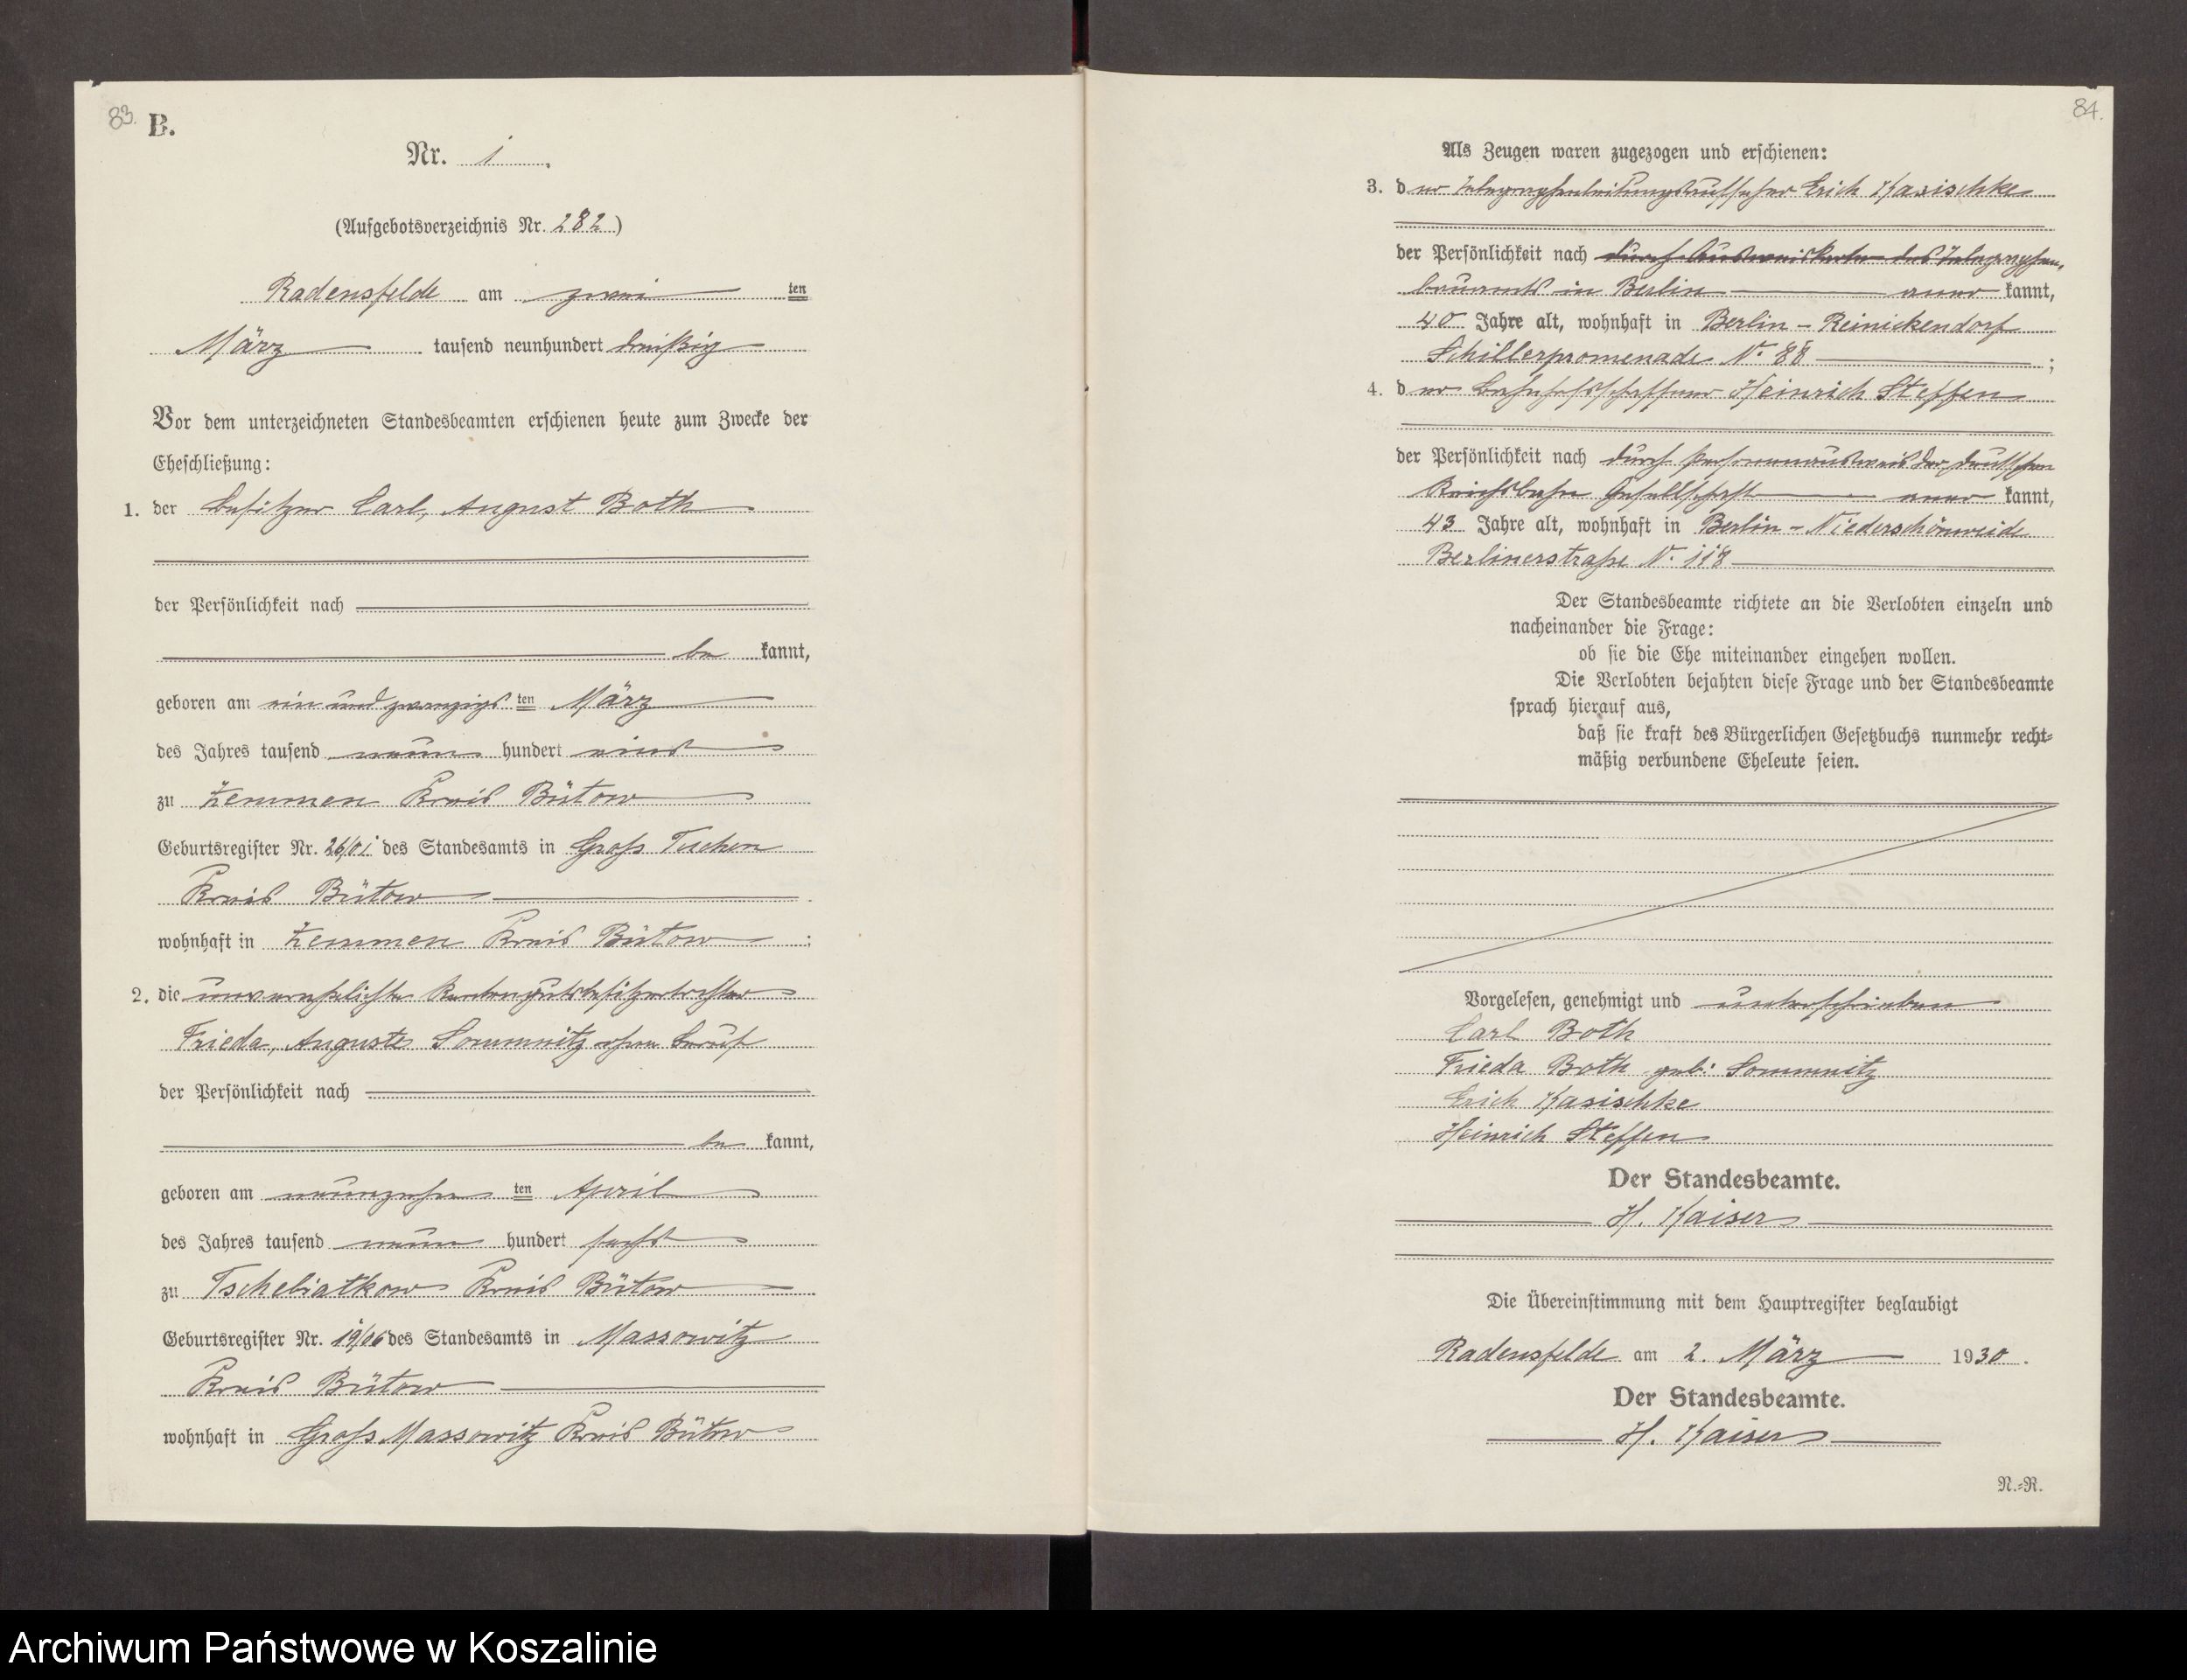 83.
B.
Nr. 1.
(Aufgebotsverzeichnis Nr. 282)
Radensfelde am zwei ten
März tausend neunhundert dreißig
Vor dem unterzeichneten Standesbeamten erschienen heute zum Zwecke der
Eheschließung:
1. der Besitzer Carl, August Both
der Persönlichkeit nach
be kannt,
geboren am ein und zwanzigs ten März
des Jahres tausend neun hundert eins
zu Zemmen Kreis Bütow
Geburtsregister Nr. 26/01 des Standesamts in Groß Tuchen
Kreis Bütow
wohnhaft in Zemmen Kreis Bütow ;
2. die unverehelichte Rentengutsbesitzertochter
Frieda, Auguste Sommnitz ohne Beruf
der Persönlichkeit nach
be kannt,
geboren am neunzehn ten April
des Jahres tausend neun hundert sechs
zu Tschebiatkow Kreis Bütow
Geburtsregister Nr. 19/06 des Standesamts in Massowitz
Kreis Bütow
wohnhaft in Groß Massowitz Kreis Bütow
84.
Als Zeugen waren zugezogen und erschienen:
3. d er Telegraphenleitungsaufseher Erich Kasischke
der Persönlichkeit nach durch Ausweiskarte des Telegraphen-
bauamts in Berlin aner kannt,
40 Jahre alt, wohnhaft in Berlin - Reinickendorf
Schillerpromenade N. 88 ;
4. d er Bahnhofsschaffner Heinrich Steffen
der Persönlichkeit nach durch Personenausweis der Deutschen
Reichsbahn Gesellschaft aner kannt,
43 Jahre alt, wohnhaft in Berlin - Niederschönweide
Berlinerstraße N. 118
Der Standesbeamte richtete an die Verlobten einzeln und
nacheinander die Frage:
ob sie die Ehe miteinander eingehen wollen.
Die Verlobten bejahten diese Frage und der Standesbeamte
sprach hierauf aus,
daß sie kraft des Bürgerlichen Gesetzbuchs nunmehr recht-
mäßig verbundene Eheleute seien.
Vorgelesen, genehmigt und unterschrieben
Carl Both
Frieda Both geb: Sommnitz
Erich Kasischke
Heinrich Steffen
Der Standesbeamte.
H. Kaiser
Die Übereinstimmung mit dem Hauptregister beglaubigt
Radensfelde am 2. März 1930.
Der Standesbeamte.
H. Kaiser
N.-R.
Archiwum Państwowe w Koszalinie